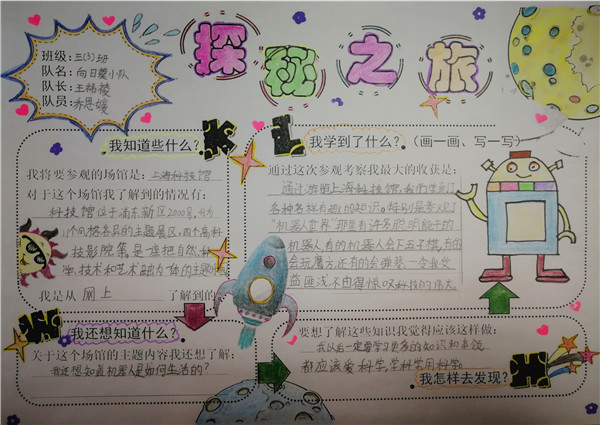 探秘之旅
班级:三(3)班
队名:向日葵小队
队长:王梓棱
队员:乔恩媛
我知道些什么?
我将要参观的场馆是:上海科技馆
对于这个场馆我了解到的情况有:
科技馆位于浦东新区2000号,分为
个风格各异的主题展区、四个高科
技影院等是一座把自然、科
学、技术和艺术融为一体的主题
我是从 网上 了解到的
我学到了什么?(画一画、写一写)
通过这次参观考察我最大的收获是:
通过游览上海科技馆,我们学到了
各种各样有趣的知识。特别是参观了
“机器人世界”那里有许多聪明能干的
机器人,有的机器人会下五子棋,有的
会玩魔方,还有的会弹琴……令我受
益匪浅,不由得惊叹科技的伟大。
我还想知道什么?
关于这个场馆的主题内容我还想了解:
我还想知道机器人是如何生活的?
要想了解这些知识我觉得应该这样做:
我以后一定要学习更多的知识和本领
都应该爱科学,学科学,用科学。
我怎样去发现?